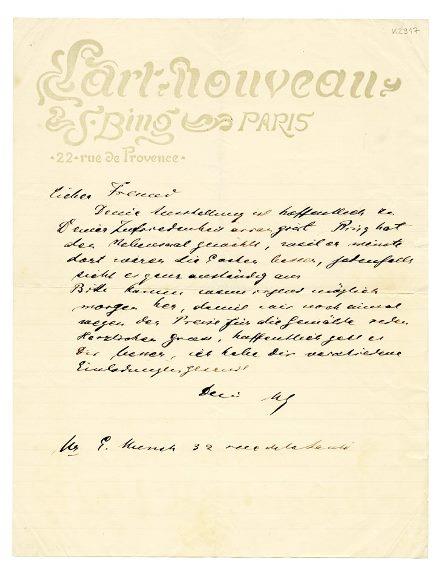 K2917
L'art nouveau
S. Bing PARIS
• 22 • rue de Provence •
Lieber Freund
Deine Ausstellung ist hoffentlich zu
Deiner Zufriedenheit arrangirt Bing hat
den Nebensaal gewählt, weil er meinte
dort wären die besser, jedenfalls
sieht es ganz anständig aus
Bitte komm wenn irgend möglich
morgen her, damit wir noch einmal
wegen der Preise für die Gemälde reden
Herzlichen Gruss, hoffentlich geht es
Dir besser, ich habe Dir verschiedene
Einladungen gesandt
Dein
E. Munch 32 rue de la Santé